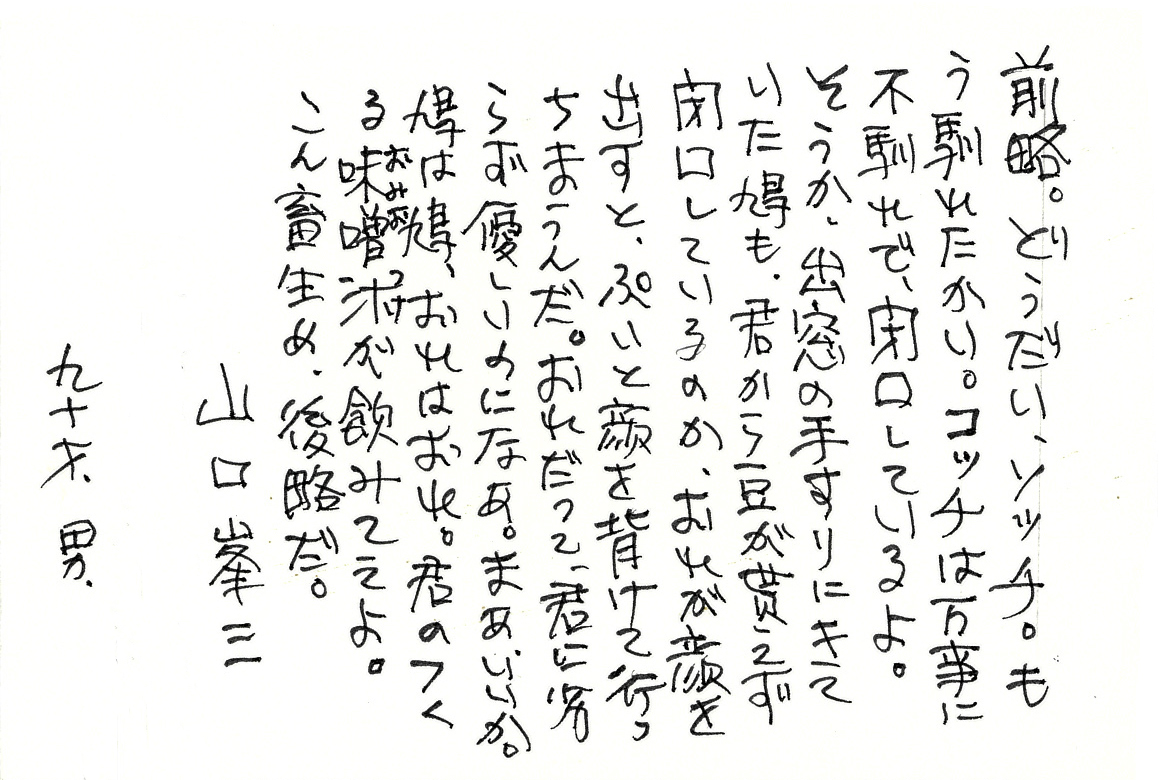 前略。どうだい、ソッチ。も
う馴れたかい。コッチは万事に
不馴れで、閉口しているよ。
そうか、出窓の手すりにキて
いた鳩も、君から豆が貰えず
閉口しているのか、おれが顔を
出すと、ぷいと顔を背けて行っ
ちまうんだ。おれだって、君に劣
らず優しいのになあ。まあいいか。
鳩は鳩、おれはおれ。君のつく
る味噌汁が飲みてえよ。
こん畜生め、後略だ。
山口峯三
九十才、男、